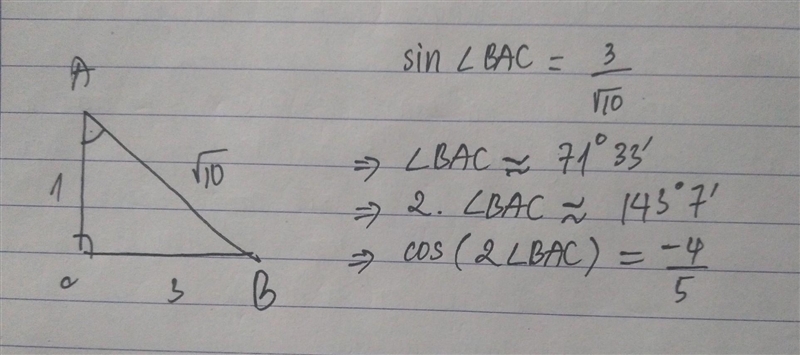 A
1
√10
C
3
B
sin ∠BAC = 3/√10
⇒ ∠BAC ≈ 71° 33'
⇒ 2. ∠BAC ≈ 143° 7'
⇒ cos(2∠BAC) = -4/5